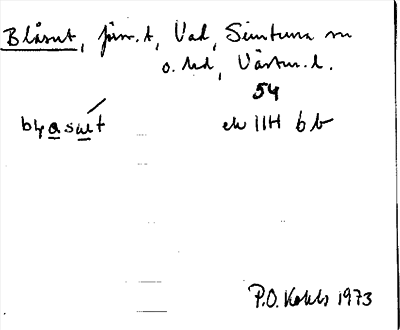 Blåsut, järn.t, Vad, Simtuna sn
o. hd, Västm.l.
54
blasut
ek 11H 6b
P.O. Kohls 1973